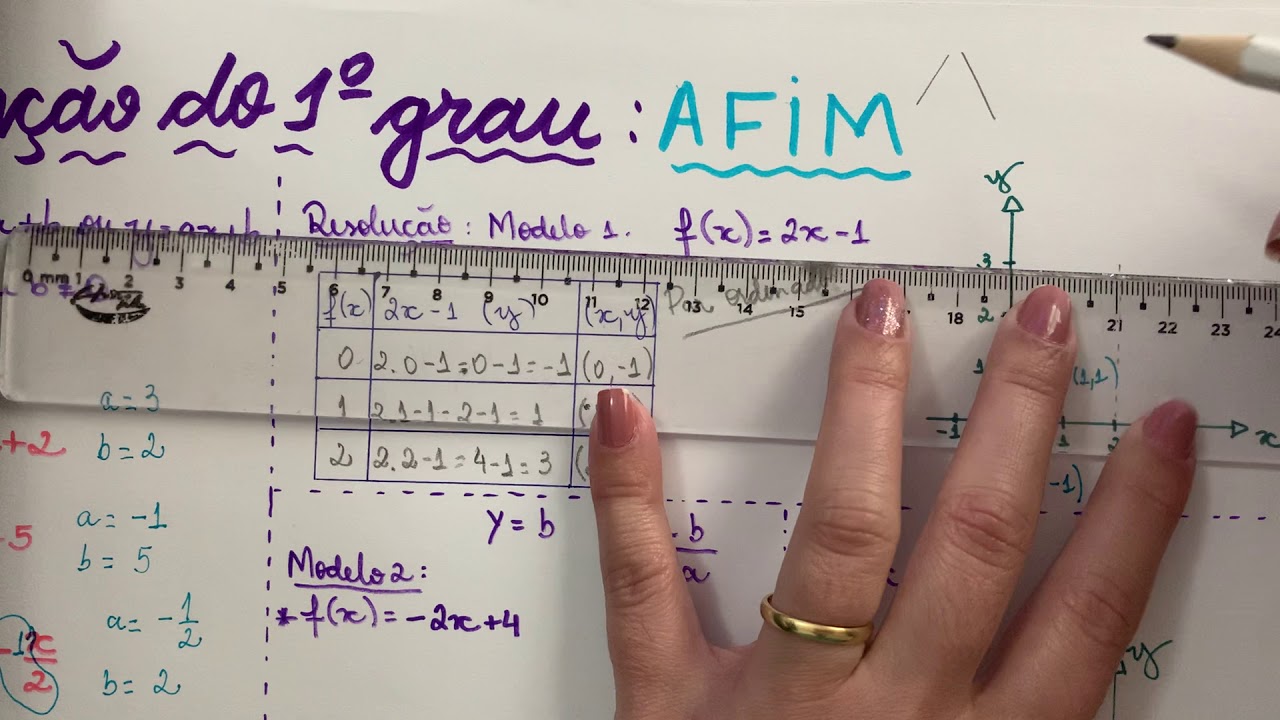 ção do 1º grau: AFIM
Resolução: Modelo 1. f(x) = 2x - 1
f(x) 2x - 1 (y) (x, y)
0 2.0-1=0-1=-1 (0,-1)
1 2.1-1-2-1=1
2 2.2-1=4-1=3
a=3
b=2
+2
a=-1
b=5
5
a=-1/2
b=2
x/2
y=b
b/a
Modelo 2:
* f(x)=-2x+4
y
3
2
1
(1,1)
-1 1 2 x
-1)
y
0 mm 1 2 3 4 5 6 7 8 9 10 11 12 13 14 15 18 21 22 23 24